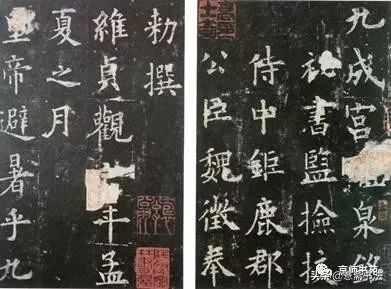 九成宮泉銘
秘書監撿挍
侍中鉅鹿郡
公臣魏徵奉
勑撰
維貞觀年孟
夏之月
皇帝避暑乎九
京师书苑